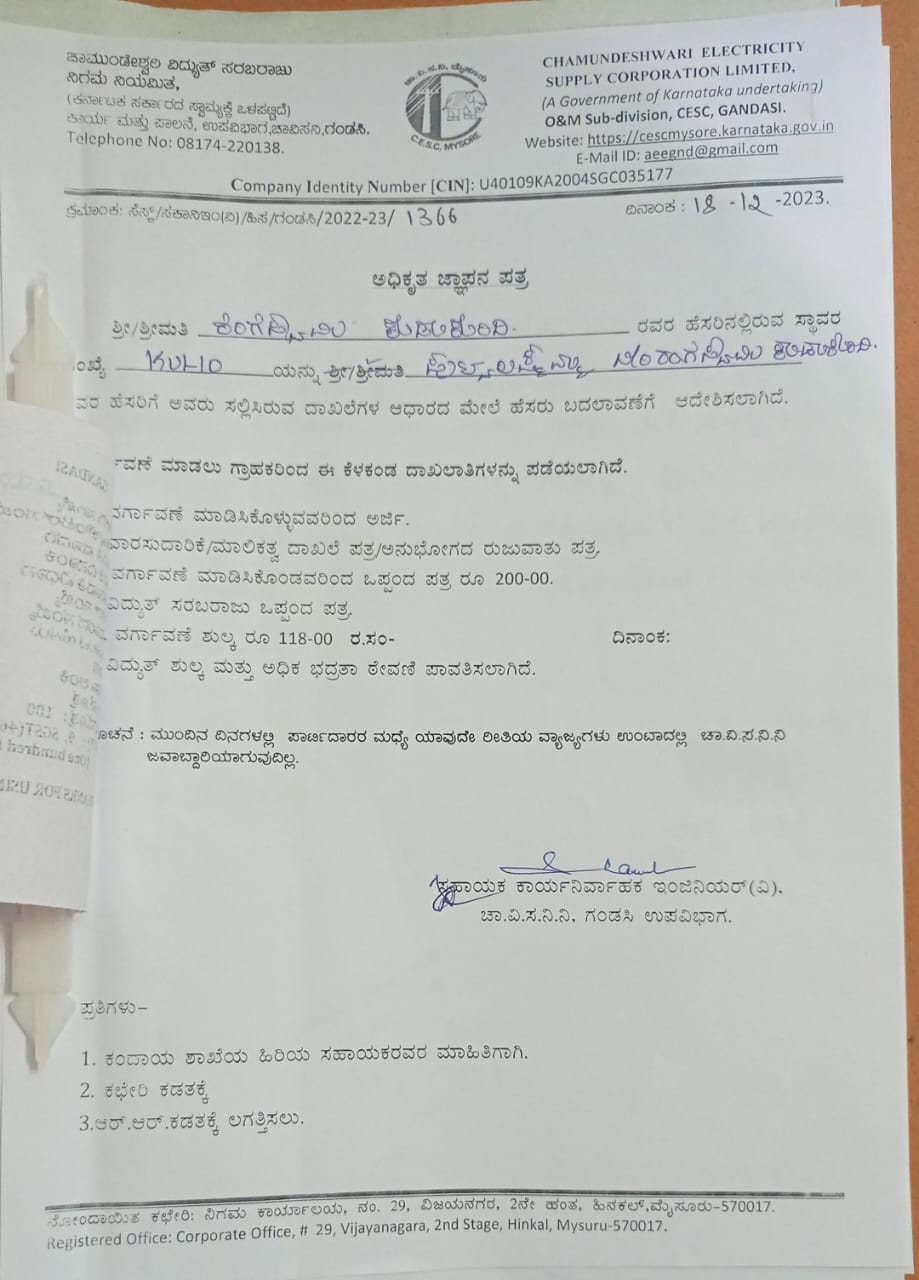 ಚಾಮುಂಡೇಶ್ವರಿ ವಿದ್ಯುತ್ ಸರಬರಾಜು
ನಿಗಮ ನಿಯಮಿತ,
(ಕರ್ನಾಟಕ ಸರ್ಕಾರದ ಸ್ವಾಮ್ಯಕ್ಕೆ ಒಳಪಟ್ಟಿದೆ)
ಕಾರ್ಯ ಮತ್ತು ಪಾಲನೆ, ಉಪವಿಭಾಗ,ಚಾವಿಸನಿ,ಗಂಡಸಿ.
Telephone No: 08174-220138.
C.E.S.C, MYSORE
CHAMUNDESHWARI ELECTRICITY
SUPPLY CORPORATION LIMITED,
(A Government of Karnataka undertaking)
O&M Sub-division, CESC, GANDASI.
Website: https://cescmysore.karnataka.gov.in
E-Mail ID: aeegnd@gmail.com
Company Identity Number [CIN]: U40109KA2004SGC035177
ಕ್ರಮಾಂಕ: ಸೆಸ್ಕ್/ಸಕಾನಿಇಂ(ವಿ)/ಹಿಸ/ಗಂಡಸಿ/2022-23/ 1366
ದಿನಾಂಕ : 18 -12 -2023.
ಅಧಿಕೃತ ಜ್ಞಾಪನ ಪತ್ರ
ಶ್ರೀ/ಶ್ರೀಮತಿ ರವರ ಹೆಸರಿನಲ್ಲಿರುವ ಸ್ಥಾವರ
ಂಖ್ಯೆ KUL10 ಯನ್ನು ಶ್ರೀ/ಶ್ರೀಮತಿ
ವರ ಹೆಸರಿಗೆ ಅವರು ಸಲ್ಲಿಸಿರುವ ದಾಖಲೆಗಳ ಆಧಾರದ ಮೇಲೆ ಹೆಸರು ಬದಲಾವಣೆಗೆ ಆದೇಶಿಸಲಾಗಿದೆ.
ವಣೆ ಮಾಡಲು ಗ್ರಾಹಕರಿಂದ ಈ ಕೆಳಕಂಡ ದಾಖಲಾತಿಗಳನ್ನು ಪಡೆಯಲಾಗಿದೆ.
ವರ್ಗಾವಣೆ ಮಾಡಿಸಿಕೊಳ್ಳುವವರಿಂದ ಅರ್ಜಿ.
ವಾರಸುದಾರಿಕೆ/ಮಾಲಿಕತ್ವ ದಾಖಲೆ ಪತ್ರ/ಅನುಭೋಗದ ರುಜುವಾತು ಪತ್ರ.
ವರ್ಗಾವಣೆ ಮಾಡಿಸಿಕೊಂಡವರಿಂದ ಒಪ್ಪಂದ ಪತ್ರ ರೂ 200-00.
ವಿದ್ಯುತ್ ಸರಬರಾಜು ಒಪ್ಪಂದ ಪತ್ರ.
ವರ್ಗಾವಣೆ ಶುಲ್ಕ ರೂ 118-00 ರ.ಸಂ- ದಿನಾಂಕ:
ವಿದ್ಯುತ್ ಶುಲ್ಕ ಮತ್ತು ಅಧಿಕ ಭದ್ರತಾ ಠೇವಣಿ ಪಾವತಿಸಲಾಗಿದೆ.
ೂಚನೆ : ಮುಂದಿನ ದಿನಗಳಲ್ಲಿ ಪಾರ್ಟಿದಾರರ ಮಧ್ಯೆ ಯಾವುದೇ ರೀತಿಯ ವ್ಯಾಜ್ಯಗಳು ಉಂಟಾದಲ್ಲಿ ಚಾ.ವಿ.ಸ.ನಿ.ನಿ
ಜವಾಬ್ದಾರಿಯಾಗುವುದಿಲ್ಲ.
ಸಹಾಯಕ ಕಾರ್ಯನಿರ್ವಾಹಕ ಇಂಜಿನಿಯರ್(ವಿ),
ಚಾ.ವಿ.ಸ.ನಿ.ನಿ, ಗಂಡಸಿ ಉಪವಿಭಾಗ.
ಪ್ರತಿಗಳು-
1. ಕಂದಾಯ ಶಾಖೆಯ ಹಿರಿಯ ಸಹಾಯಕರವರ ಮಾಹಿತಿಗಾಗಿ.
2. ಕಛೇರಿ ಕಡತಕ್ಕೆ
3.ಆರ್.ಆರ್.ಕಡತಕ್ಕೆ ಲಗತ್ತಿಸಲು.
ನೋಂದಾಯಿತ ಕಛೇರಿ: ನಿಗಮ ಕಾರ್ಯಾಲಯ, ನಂ. 29, ವಿಜಯನಗರ, 2ನೇ ಹಂತ, ಹಿನಕಲ್,ಮೈಸೂರು-570017.
Registered Office: Corporate Office, # 29, Vijayanagara, 2nd Stage, Hinkal, Mysuru-570017.